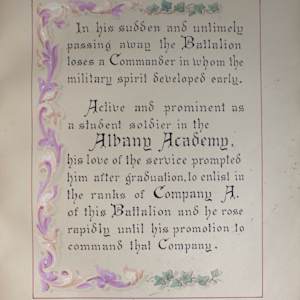 In his sudden and untimely
passing away the Battalion
loses a Commander in whom the
military spirit developed early.
Active and prominent as
a student soldier in the
Albany Academy,
his love of the service prompted
him after graduation, to enlist in
the ranks of Company A.
of this Battalion and he rose
rapidly until his promotion to
command that Company.